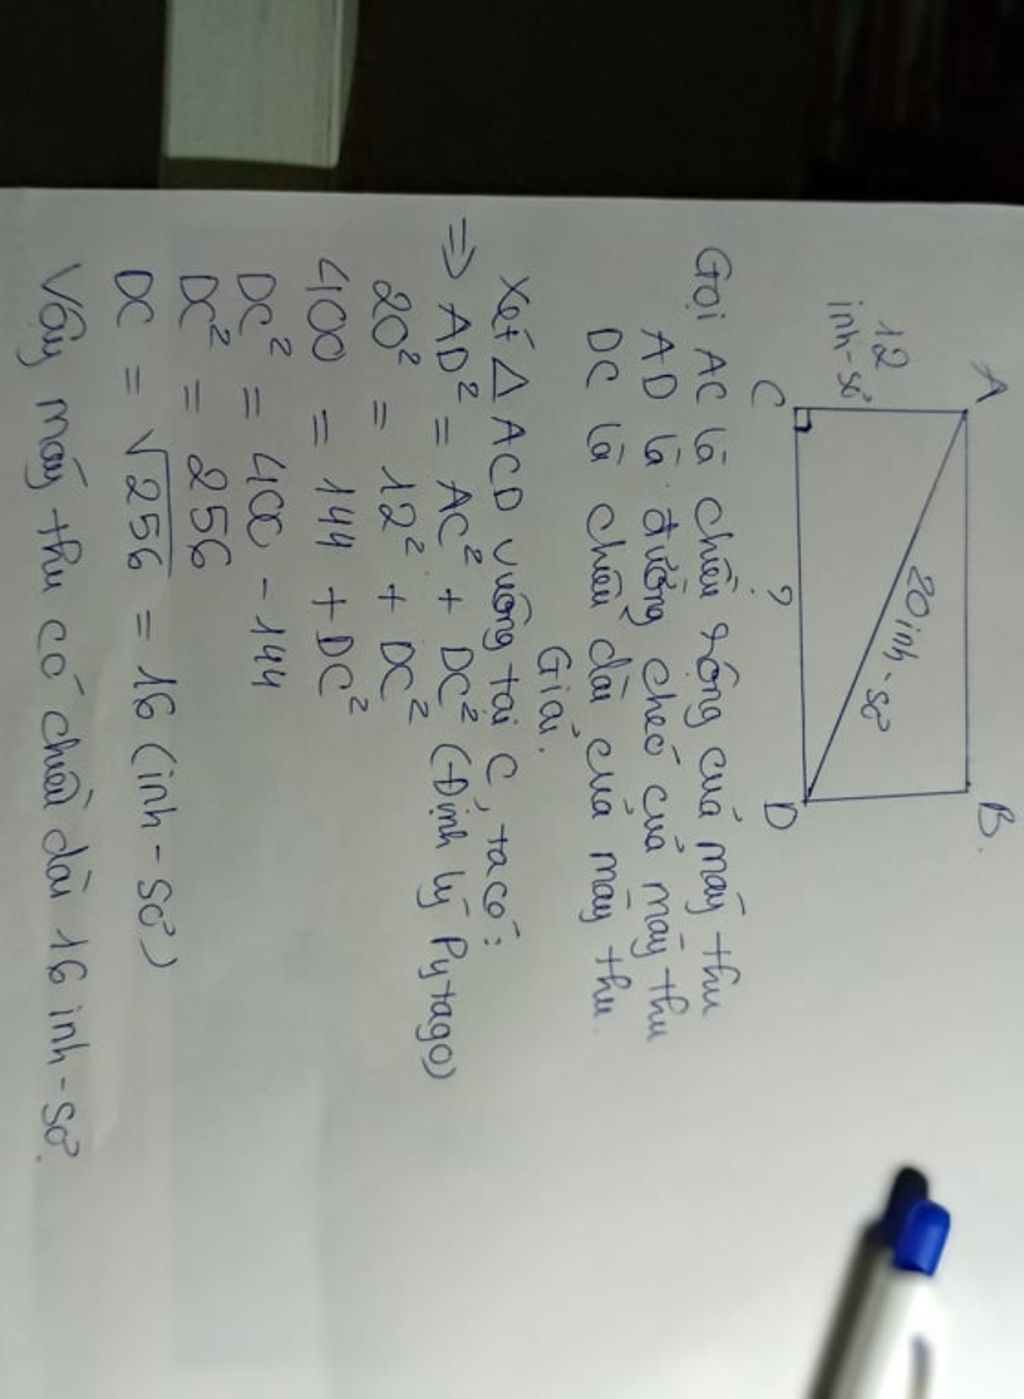 A
B.
12
inh-sơ
20 inh-sơ
C
?
D
Gọi AC là chiều rộng của máy thu
AD là đường chéo của máy thu
DC là chiều dài của máy thu.
Giải.
Xét △ ACD vuông tại C, ta có:
=> AD² = AC² + DC² (Định lý Pytago)
20² = 12² + DC²
400 = 144 + DC²
DC² = 400 - 144
DC² = 256
DC = √256 = 16 (inh-sơ)
Vậy máy thu có chiều dài 16 inh-sơ.